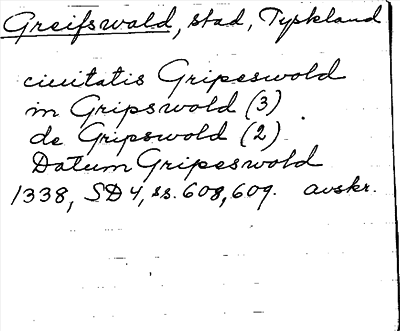 Greifswald, stad, Tyskland
ciuitatis Gripeswold
in Gripswold (3)
de Gripswold (2)
Datum Gripeswold
1338, SD 4, ss. 608, 609. avskr.